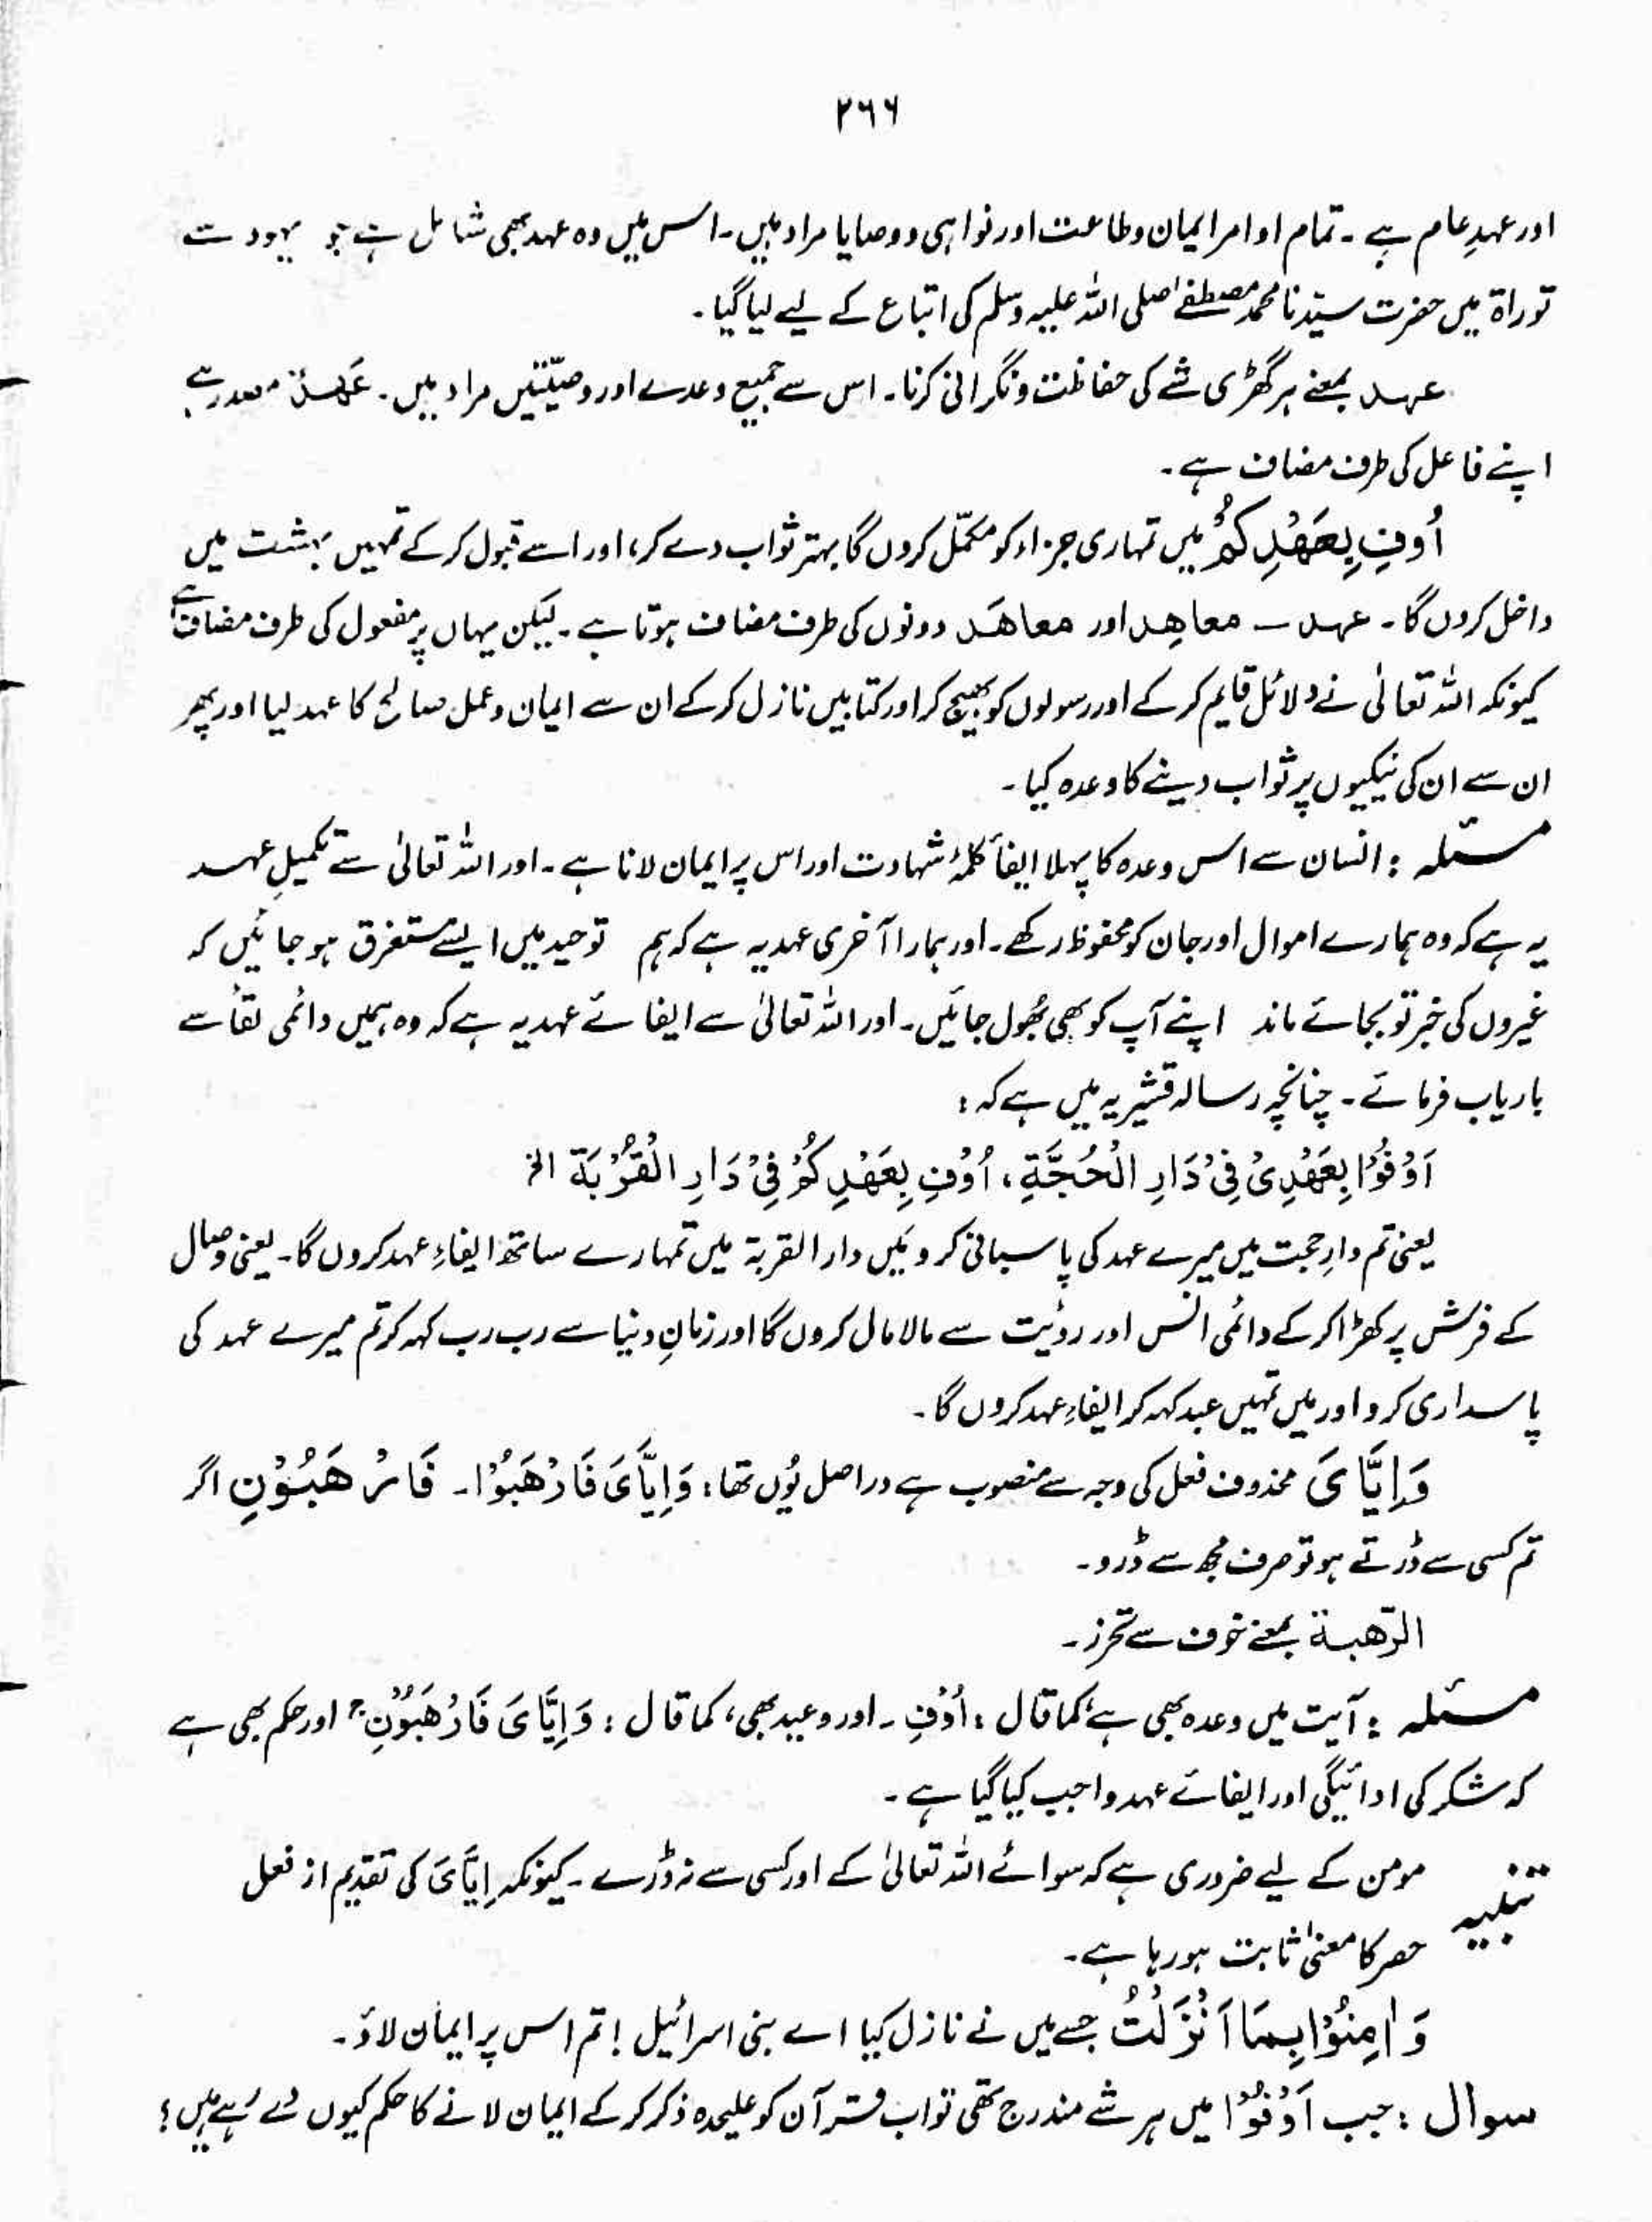 ۲۶۶
اور عہدِ عام ہے ۔ تمام اوامر ایمان و طاعت اور نواہی و وصایا مراد ہیں ۔ اس میں وہ عہد بھی شامل ہے جو یہود سے
توراۃ میں حضرت سیّدنا محمد مصطفےٰ صلی اللہ علیہ وسلم کی اتباع کے لیے لیا گیا ۔
عہد بمعنے ہر گھڑی شے کی حفاظت و نگرانی کرنا ۔ اس سے جمیع وعدے اور وصیّتیں مراد ہیں ۔ عَہْدٌ مصدر ہے
اپنے فاعل کی طرف مضاف ہے ۔
اُوفِ بِعَھْدِکُمْ میں تمہاری جزاء کو مکمّل کروں گا بہتر ثواب دے کر، اور اسے قبول کر کے تمہیں بہشت میں
داخل کروں گا ۔ عہد ـ معاھِد اور معاھَد دونوں کی طرف مضاف ہوتا ہے ۔ لیکن یہاں پر مفعول کی طرف مضاف ہے
کیونکہ اللہ تعالیٰ نے دلائل قایم کر کے اور رسولوں کو بھیج کر اور کتابیں نازل کر کے ان سے ایمان و عمل صالح کا عہد لیا اور پھر
ان سے ان کی نیکیوں پر ثواب دینے کا وعدہ کیا ۔
مسئلہ : انسان سے اس وعدہ کا پہلا ایفأ کلمۂ شہادت اور اس پر ایمان لانا ہے ۔ اور اللہ تعالیٰ سے تکمیلِ عہد
یہ ہے کہ وہ ہمارے اموال اور جان کو محفوظ رکھے ۔ اور ہمارا آخری عہد یہ ہے کہ ہم توحید میں ایسے مستغرق ہو جائیں کہ
غیروں کی خبر تو بجائے ماند اپنے آپ کو بھی بُھول جائیں ۔ اور اللہ تعالیٰ سے ایفائے عہد یہ ہے کہ وہ ہمیں دائمی لقأ سے
باریاب فرمائے ۔ چنانچہ رسالہ قشیریہ میں ہے کہ :
اَوْفُوْا بِعَھْدِیْ فِیْ دَارِ الْحُجَّۃِ ، اُوْفِ بِعَھْدِکُمْ فِیْ دَارِ الْقُرْبَۃ الخ
یعنی تم دارِ حجت میں میرے عہد کی پاسبانی کرو مَیں دار القربۃ میں تمہارے ساتھ ایفاءِ عہد کروں گا ۔ یعنی وصال
کے فرش پر کھڑا کر کے دائمی انس اور روئیت سے مالا مال کروں گا اور زمانِ دنیا سے رب رب کہہ کر تم میرے عہد کی
پاسداری کرو اور میں تمہیں عبد کہہ کر ایفاءِ عہد کروں گا ۔
وَاِیَّایَ محذوف فعل کی وجہ سے منصوب ہے دراصل یُوں تھا : وَاِیَّایَ فَارْھَبُوْا ۔ فَارْھَبُوْنِ اگر
تم کسی سے ڈرتے ہو تو صرف مجھ سے ڈرو ۔
الرّھبۃ بمعنے خوف سے تحرز ۔
مسئلہ : آیت میں وعدہ بھی ہے، کما قال : اُوْفِ ۔ اور وعید بھی، کما قال : وَاِیَّایَ فَارْھَبُوْنِ اور حکم بھی ہے
کہ شکر کی ادائیگی اور ایفائے عہد واجب کیا گیا ہے ۔
تنبیہ مومن کے لیے ضروری ہے کہ سوائے اللہ تعالیٰ کے اور کسی سے نہ ڈرے ۔ کیونکہ اِیَّایَ کی تقدیم از فعل
حصر کا معنیٰ ثابت ہو رہا ہے ۔
وَاٰمِنُوْا بِمَا اَنْزَلْتُ جسے میں نے نازل کیا اے بنی اسرائیل ! تم اس پر ایمان لاؤ ۔
سوال : جب اَوْفُوْا میں ہر شے مندرج تھی تو اب قرآن کو علیحدہ ذکر کر کے ایمان لانے کا حکم کیوں دے رہے ہیں ؟